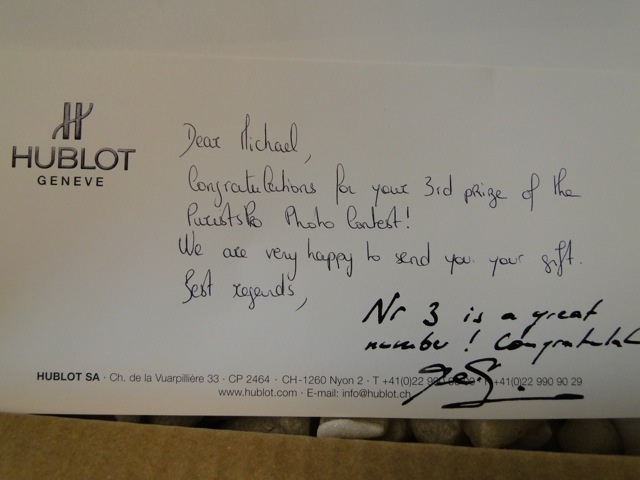 HUBLOT
GENEVE
Dear Michael,
Congratulations for your 3rd prize of the
PuristsPro Photo Contest!
We are very happy to send you your gift.
Best regards,
Nr 3 is a great
number! Congratulat
HUBLOT SA · Ch. de la Vuarpillière 33 · CP 2464 · CH-1260 Nyon 2 · T +41(0)22 990 +41(0)22 990 90 29
www.hublot.com · E-mail: info@hublot.ch